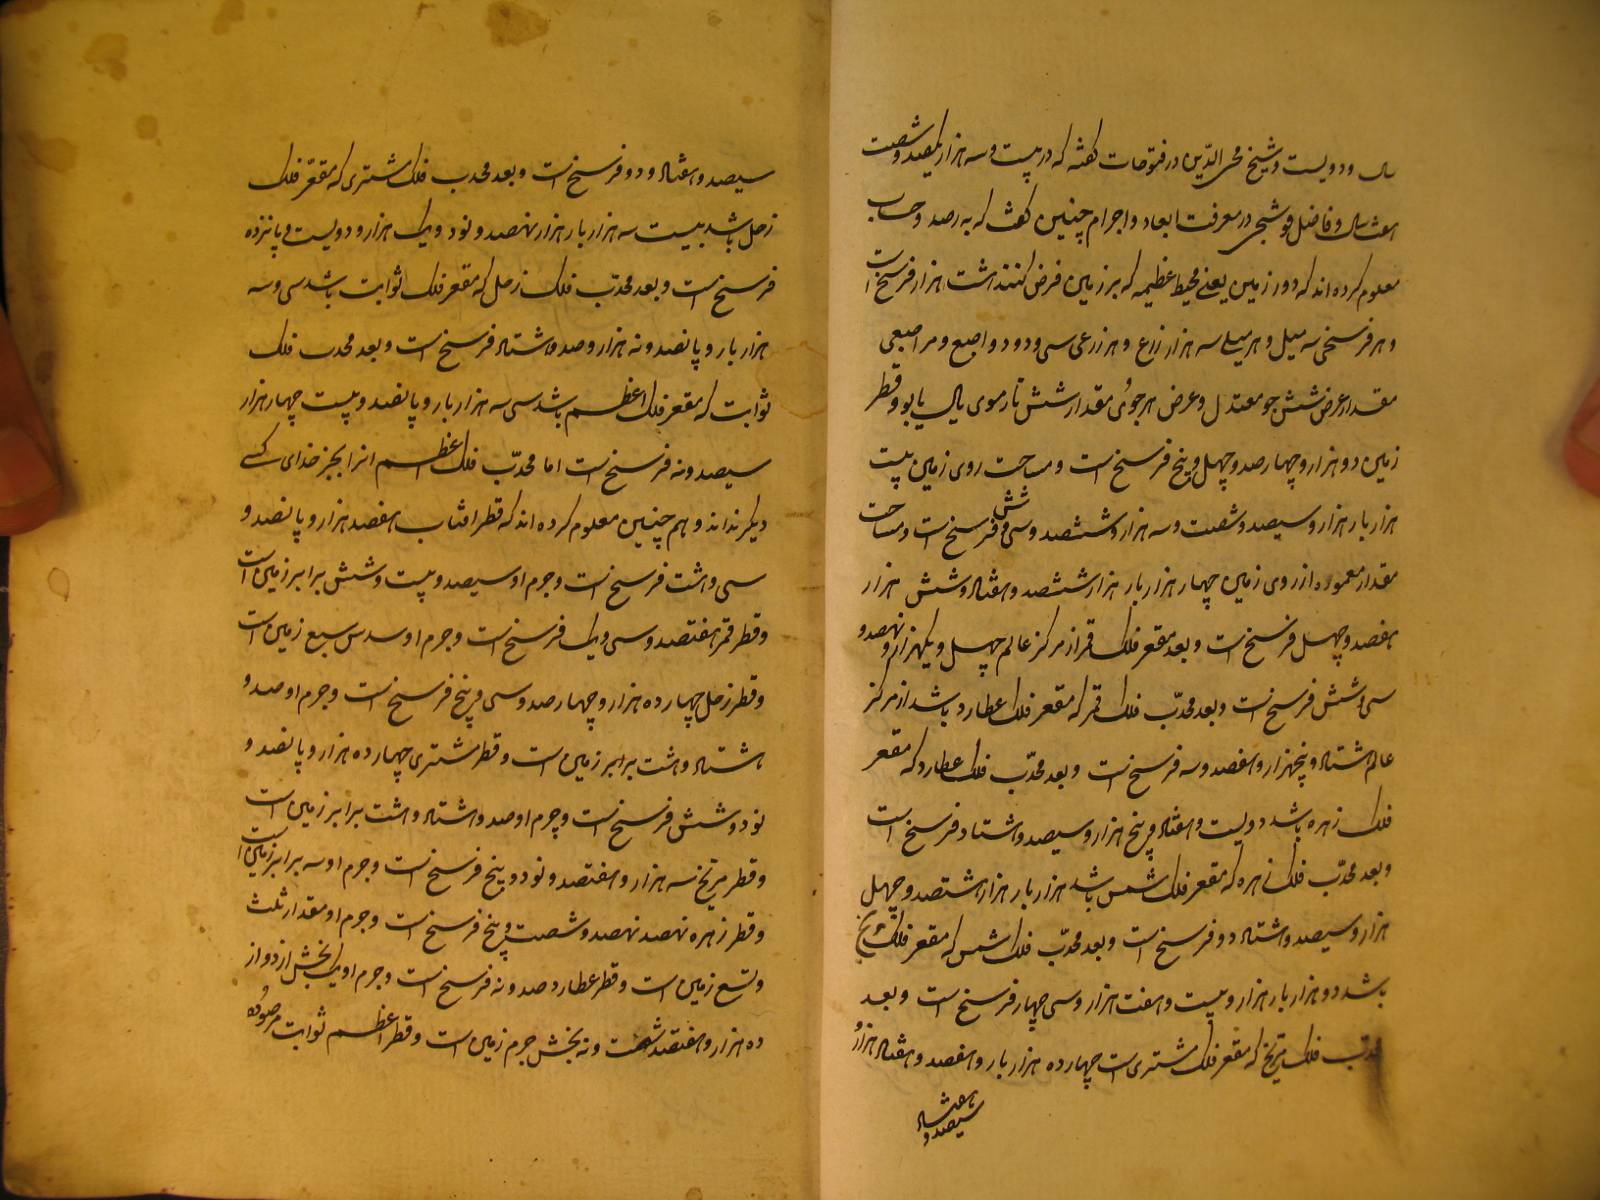 سال و دویست و شیخ محی الدین در فتوحات کفته که در بیست و سه هزار یکصد و شصت
هفت سال و فاضل قوشجی در معرفت ابعاد و اجرام چنین کفت که به رصد و حساب
معلوم کرده اند که دور زمین یعنی محیط عظیمه که بر زمین فرض کنند هشت هزار فرسخ است
و هر فرسخی سه میل و هر میلی سه هزار زرع و هر زرعی سی و دو اصبع و هر اصبعی
مقدار عرض شش جو معتدل و عرض هر جوئی مقدار شش تار موی یال یابو و قطر
زمین دو هزار و چهار صد و چهل و پنج فرسخ است و مساحت روی زمین بیست
هزار بار هزار و سیصد و شصت و سه هزار و ششصد و سی و شش فرسخ است و مساحت
مقدار معموره از روی زمین چهار هزار بار هزار ششصد و هفتاد و شش هزار
هفصد و چهل فرسخ است و بعد مقعر فلک قمر از مرکز عالم چهل و یکهزار و نهصد و
سی و شش فرسخ است و بعد محدّب فلک قمر که مقعر فلک عطارد باشد از مرکز
عالم هشتاد و پنجهزار و هفصد و سه فرسخ است و بعد محدّب فلک عطارد که مقعر
فلک زهره باشد دویست و هفتاد و پنج هزار و سیصد و هشتاد فرسخ است
و بعد محدّب فلک زهره که مقعر فلک شمس باشد هزار بار هزار هشتصد و چهل
هزار و سیصد و هشتاد دو فرسخ است و بعد محدّب فلک شمس که مقعر فلک مریخ
باشد دو هزار بار هزار و بیست و هفت هزار و سی چهار فرسخ است و بعد
محدّب فلک مریخ که مقعر فلک مشتری است چهارده هزار بار و هفصد و هفتاد هزار و
سیصد و هفتاد
سیصد و هفتاد و دو فرسخ است و بعد محدب فلک مشتری که مقعّر فلک
زحل باشد بیست سه هزار بار هزار نهصد و نود و یک هزار و دویست و پانزده
فرسخ است و بعد محدّب فلک زحل که مقعر فلک ثوابت باشد سی و سه
هزار بار و پانصد و نه هزار و صد و هشتاد فرسخ است و بعد محدب فلک
ثوابت که مقعر فلک اعظم باشد سی سه هزار بار و پانصد و بیست چهار هزار
سیصد و نه فرسخ است اما محدّب فلک اعظم انرا بجز خدای کسی
دیکر نداند و هم چنین معلوم کرده اند که قطر افتاب هفصد هزار و پانصد و
سی و هشت فرسخ است و جرم او سیصد و بیست و شش برابر زمین است
و قطر قمر هفتصد و سی و یک فرسخ است و جرم او سدس سبع زمین است
و قطر زحل چهارده هزار و چهار صد و سی و پنج فرسخ است و جرم او صد و
هشتاد و هشت برابر زمین است و قطر مشتری چهارده هزار و پانصد و
نود و شش فرسخ است و جرم او صد و هشتاد و هشت برابر زمین است
و قطر مریخ سه هزار و هفتصد و نود و پنج فرسخ است و جرم او سه برابر زمین است
و قطر زهره نهصد نهصد و شصت و پنج فرسخ است و جرم او مقدار ثلث
و تسع زمین است و قطر عطارد صد و نه فرسخ است و جرم او یک بخش از دواز
ده هزار و هفتصد شصت و نه بخش جرم زمین است و قطر اعظم ثوابت مرصوده